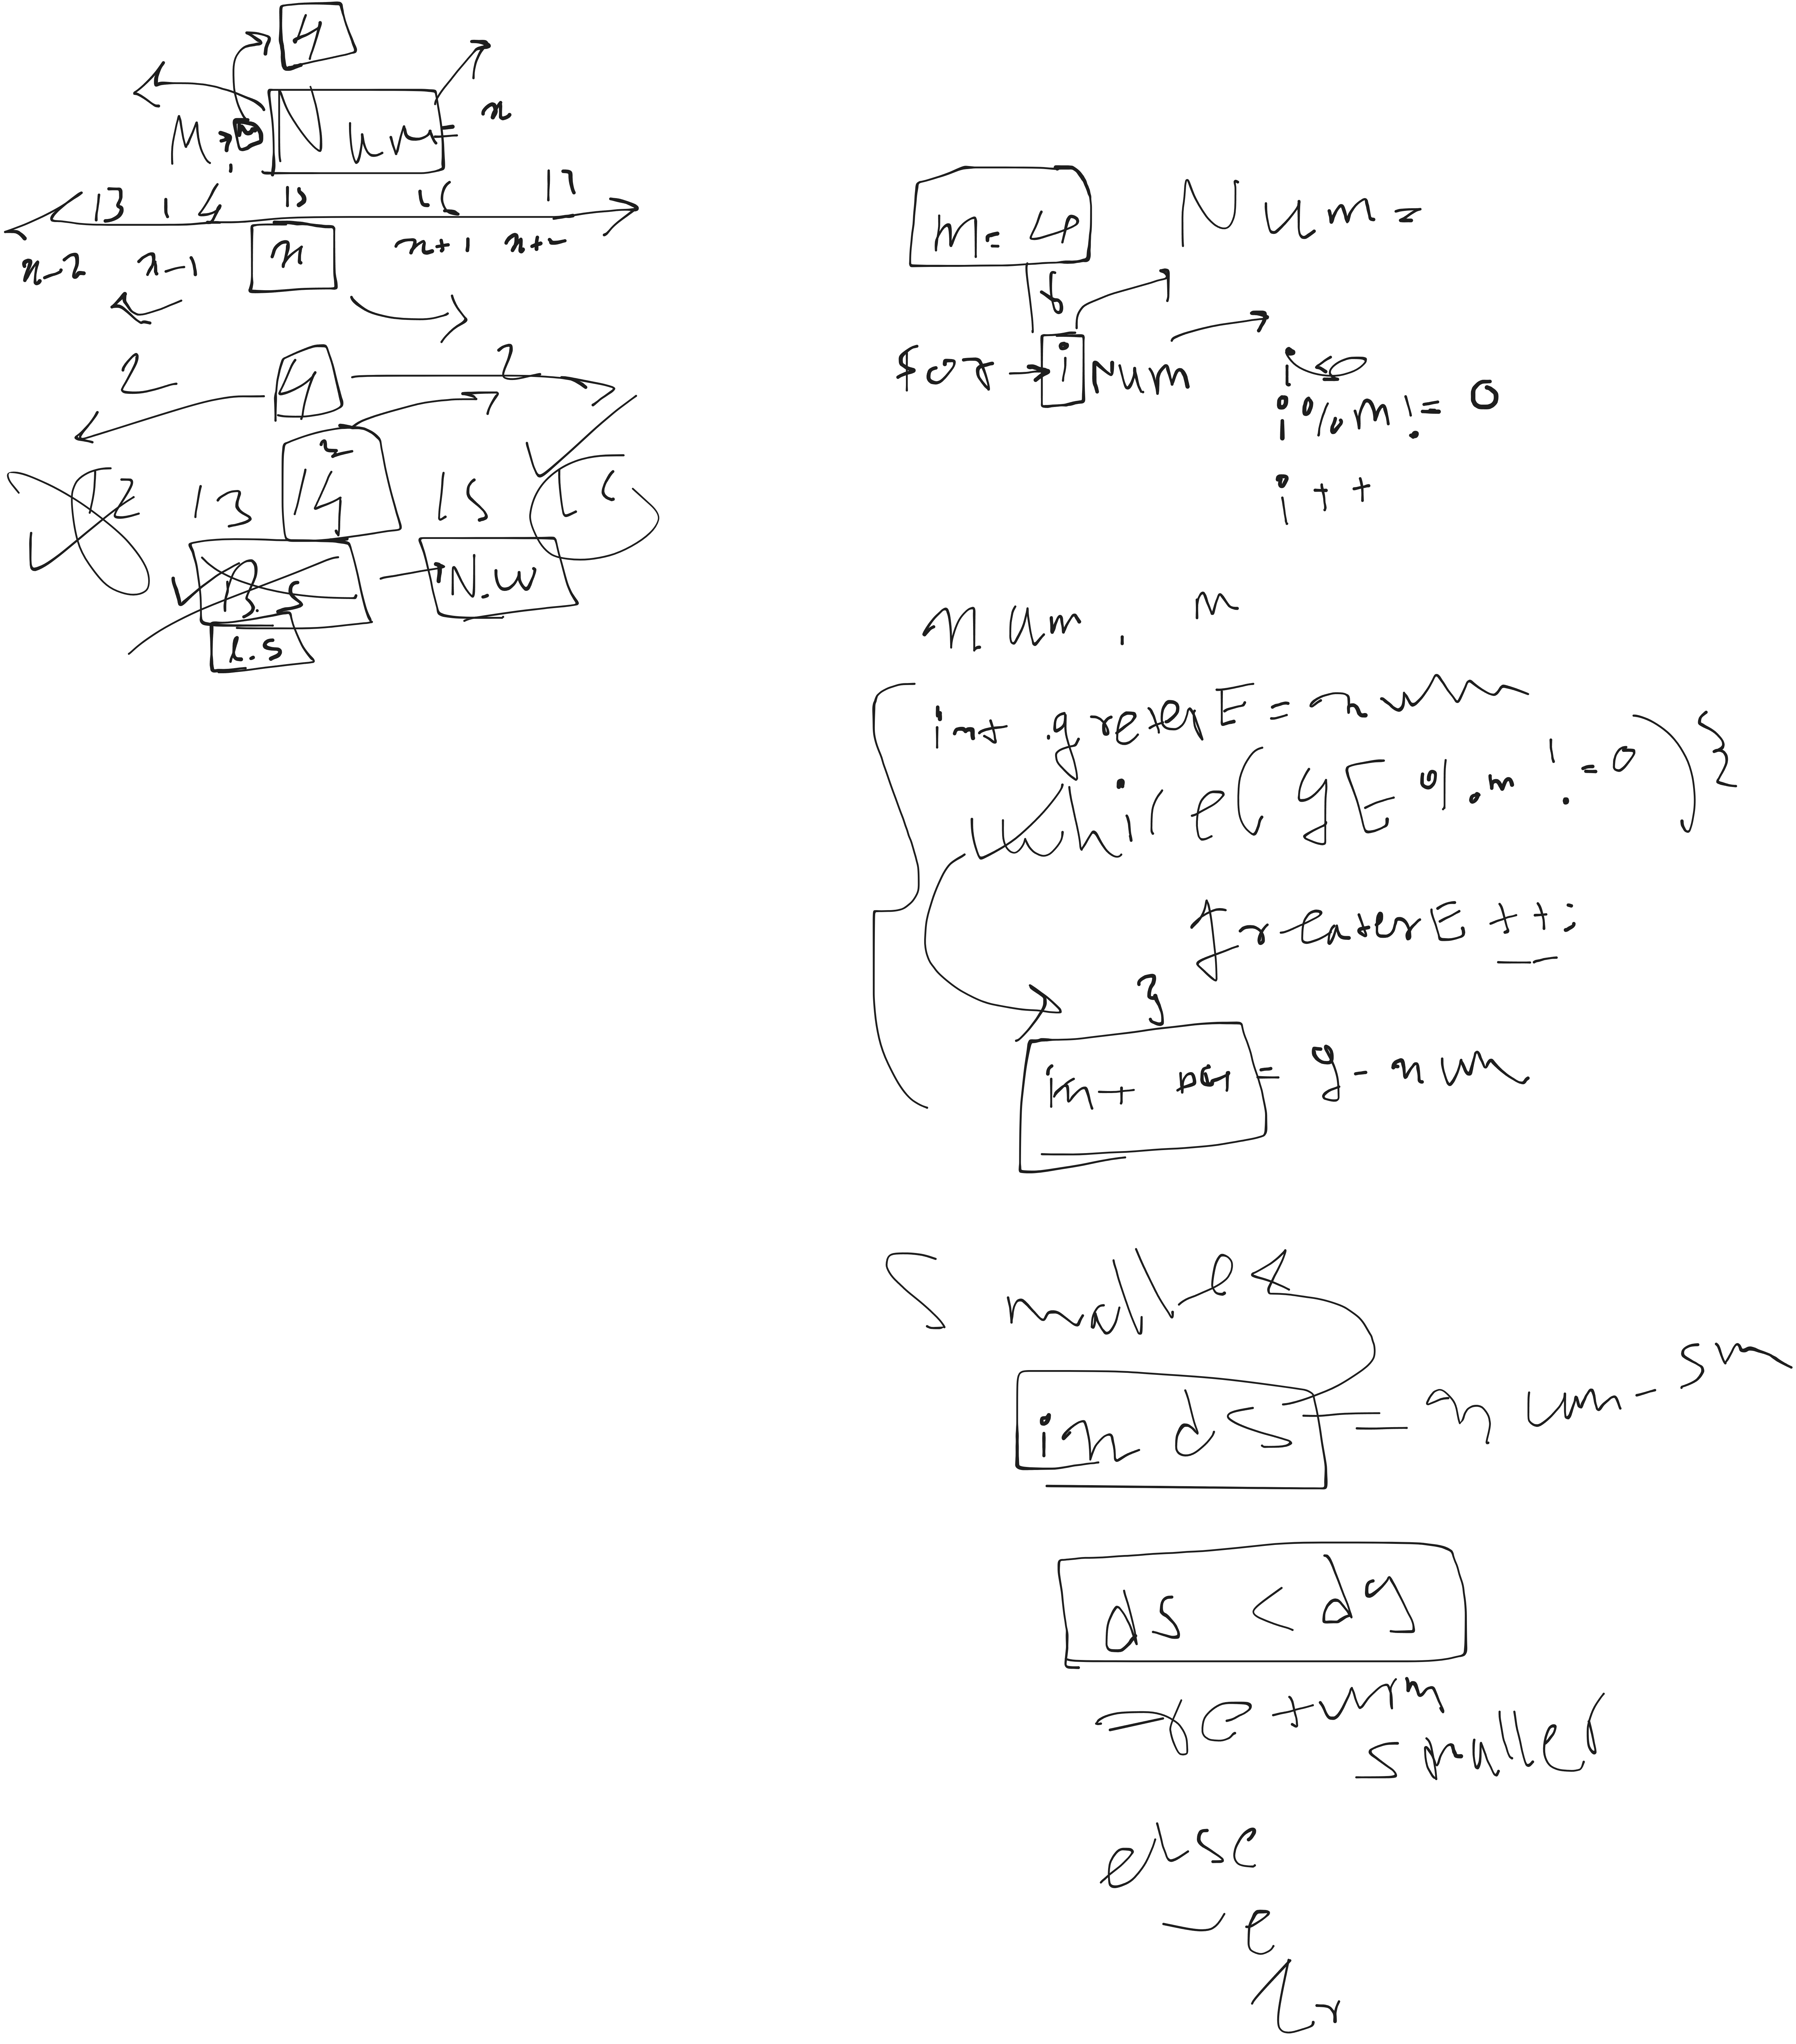 4
Num=
n
M:
13 14 15 16 17
n-2 n-1 n n+1 n+
2 4 2
2
12 13 14 15 16
B.S N.W
L.S
m= 4 Num=
for i Num
i%m!= 0
i++
num, m
int greaterE = num
while( gE % m != 0 ) {
greaterE ++;
}
int = g - num
Smaller
in ds = num - sm
ds < dg
return
smaller
else